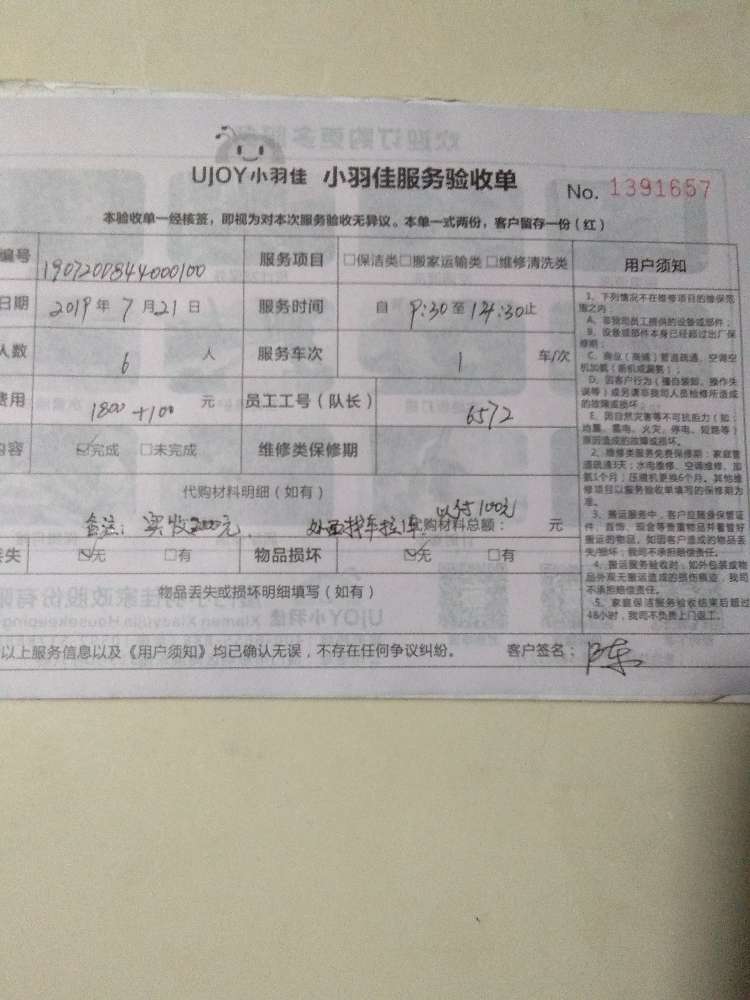 UJOY小羽佳 小羽佳服务验收单 No. 1391657
本验收单一经核签，即视为对本次服务验收无异议。本单一式两份，客户留存一份（红）
编号 1907200844000100 服务项目 □保洁类□搬家运输类□维修清洗类 用户须知
日期 2019年7月21日 服务时间 自 9:30至14:30止
人数 6 人 服务车次 1 车/次
费用 1800+100 元 员工工号（队长） 6572
内容 ☑完成 □未完成 维修类保修期
代购材料明细（如有）
备注：实收 元， 外面找车拉1车 以付100元
代购材料总额： 元
丢失 ☑无 □有 物品损坏 ☑无 □有
物品丢失或损坏明细填写（如有）
以上服务信息以及《用户须知》均已确认无误，不存在任何争议纠纷。 客户签名：陈
1、下列情况不在维修项目的维保范
围之内：
A、非我司员工提供的设备或部件；
B、设备或部件本身已经超过出厂保
修期；
C、商业（商铺）管道疏通、空调空
机加氨（断机或漏氨）；
D、因客户行为（擅自装卸、操作失
误等）或另请非我司人员检修所造成
的故障或损坏；
E、因自然灾害等不可抗力（如：
地震、雷电、火灾、停电、短路等）
原因造成的故障或损坏。
2、维修类服务免费保修期：家庭管
道疏通3天；水电维修、空调维修、加
氨1个月；压缩机更换6个月。其他维
修项目以服务验收单填写的保修期为
准。
3、搬运服务中，客户应随身保管证
件、首饰、现金等贵重物品并看管好
搬运的物品，如因客户造成的物品丢
失/损坏，我司不承担赔偿责任。
4、搬运服务验收时，如外包装或物
品外观无搬运造成的损伤痕迹，我司
不承担赔偿责任。
5、家庭保洁服务验收结束后超过
48小时，我司不负责上门返工。